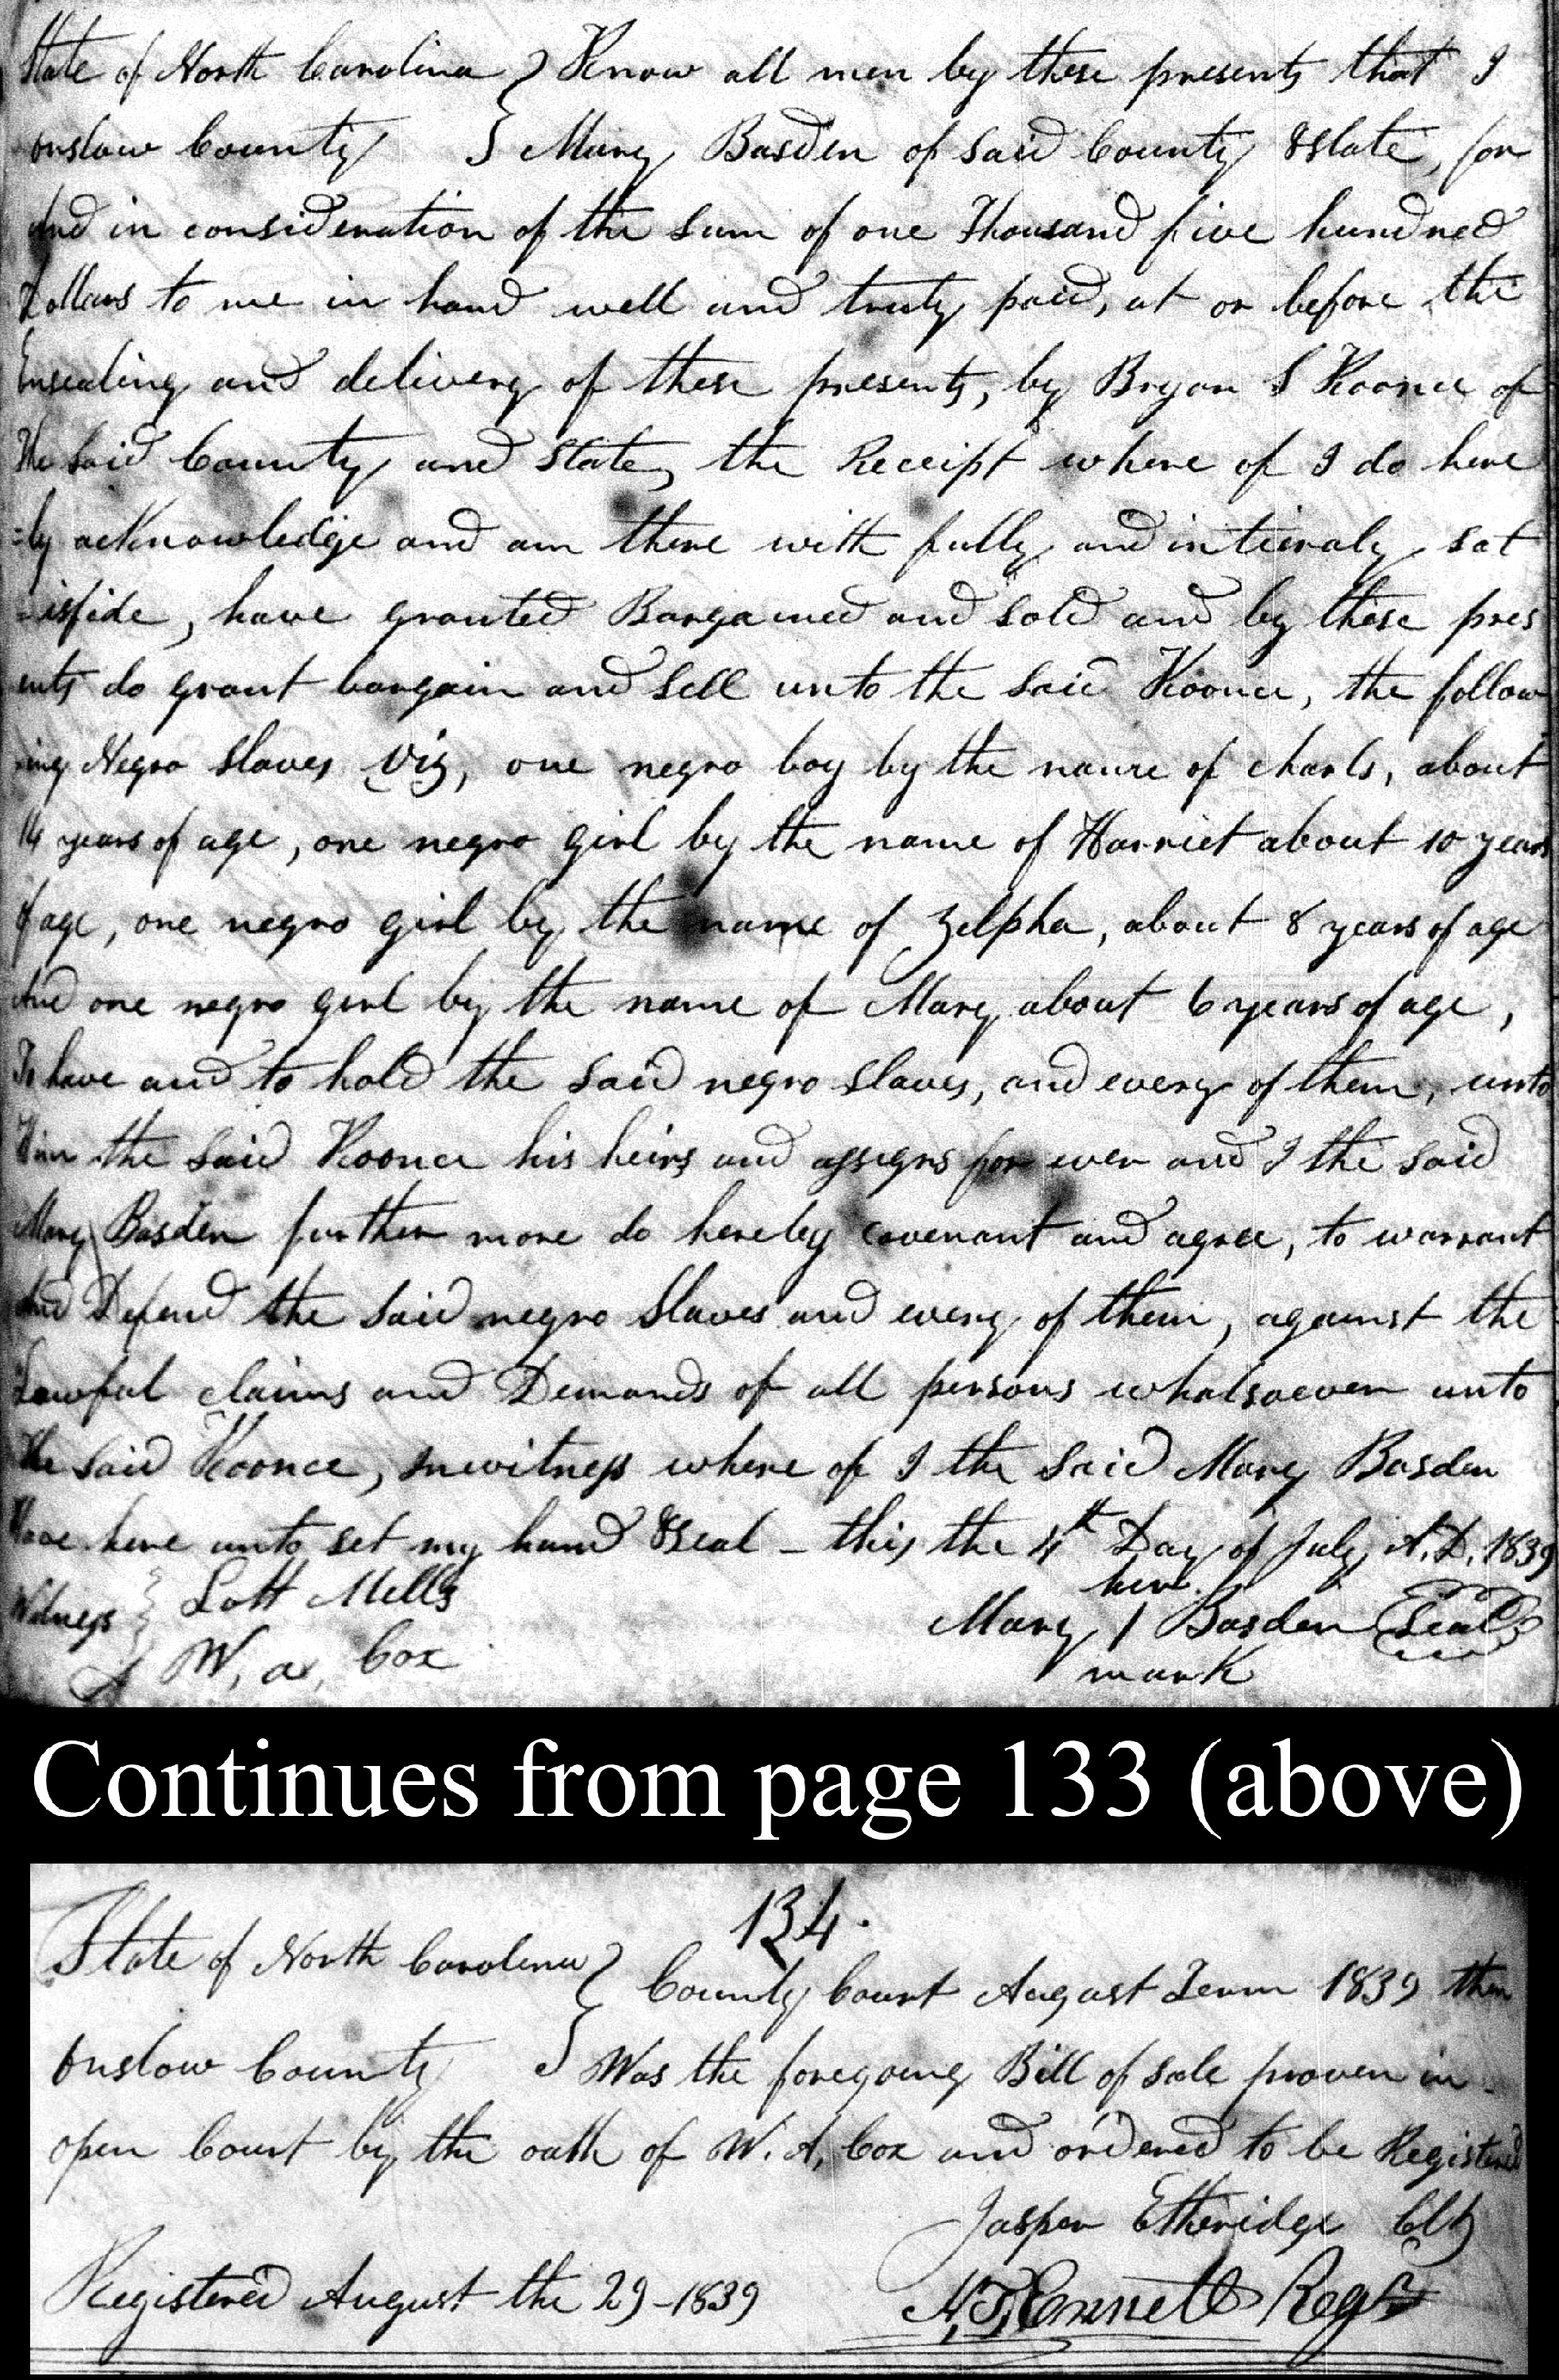 State of North Carolina } Know all men by these presents that I
onslow County } Mary Basden of said County & State, for
And in consideration of the sum of one Thousand five hundred
Dollars to me in hand well and truly paid, at or before the
Ensealing and delivery of these presents, by Bryan S Koonce of
the said County and State, the Receipt where of I do here
=by acknowledge and am there with fully and intieraly sat
=isfide, have granted Bargained and sold and by these pres
ents do grant bargain and sell unto the said Koonce, the follow
ing Negro slaves viz, one negro boy by the name of charls, about
14 years of age, one negro girl by the name of Harriet about 10 years
of age, one negro girl by the name of Zelpha, about 8 years of age
And one negro girl by the name of Mary about 6 years of age,
To have and to hold the said negro slaves, and every of them, unto
Him the said Koonce his heirs and assigns for ever and I the said
Mary Basden further more do hereby covenant and agree, to warrant
And Defend the said negro slaves and every of them, against the
Lawful claims and Demands of all persons whatsoever unto
the said Koonce, In witness where of I the said Mary Basden
Have here unto set my hand & Seal – this the 4th Day of July A.D. 1839
her
Witness } Lott Mells Mary / Basden Seal
W, a, Cox mark
Continues from page 133 (above)
134.
State of North Carolina } County Court August Term 1839 then
Onslow County } Was the foregoing Bill of sale proven in
open Court by the oath of W. A. Cox and ordered to be Registered
Jasper Etheridge Clk
Registered August the 29 – 1839 N. T. Ennett Regr